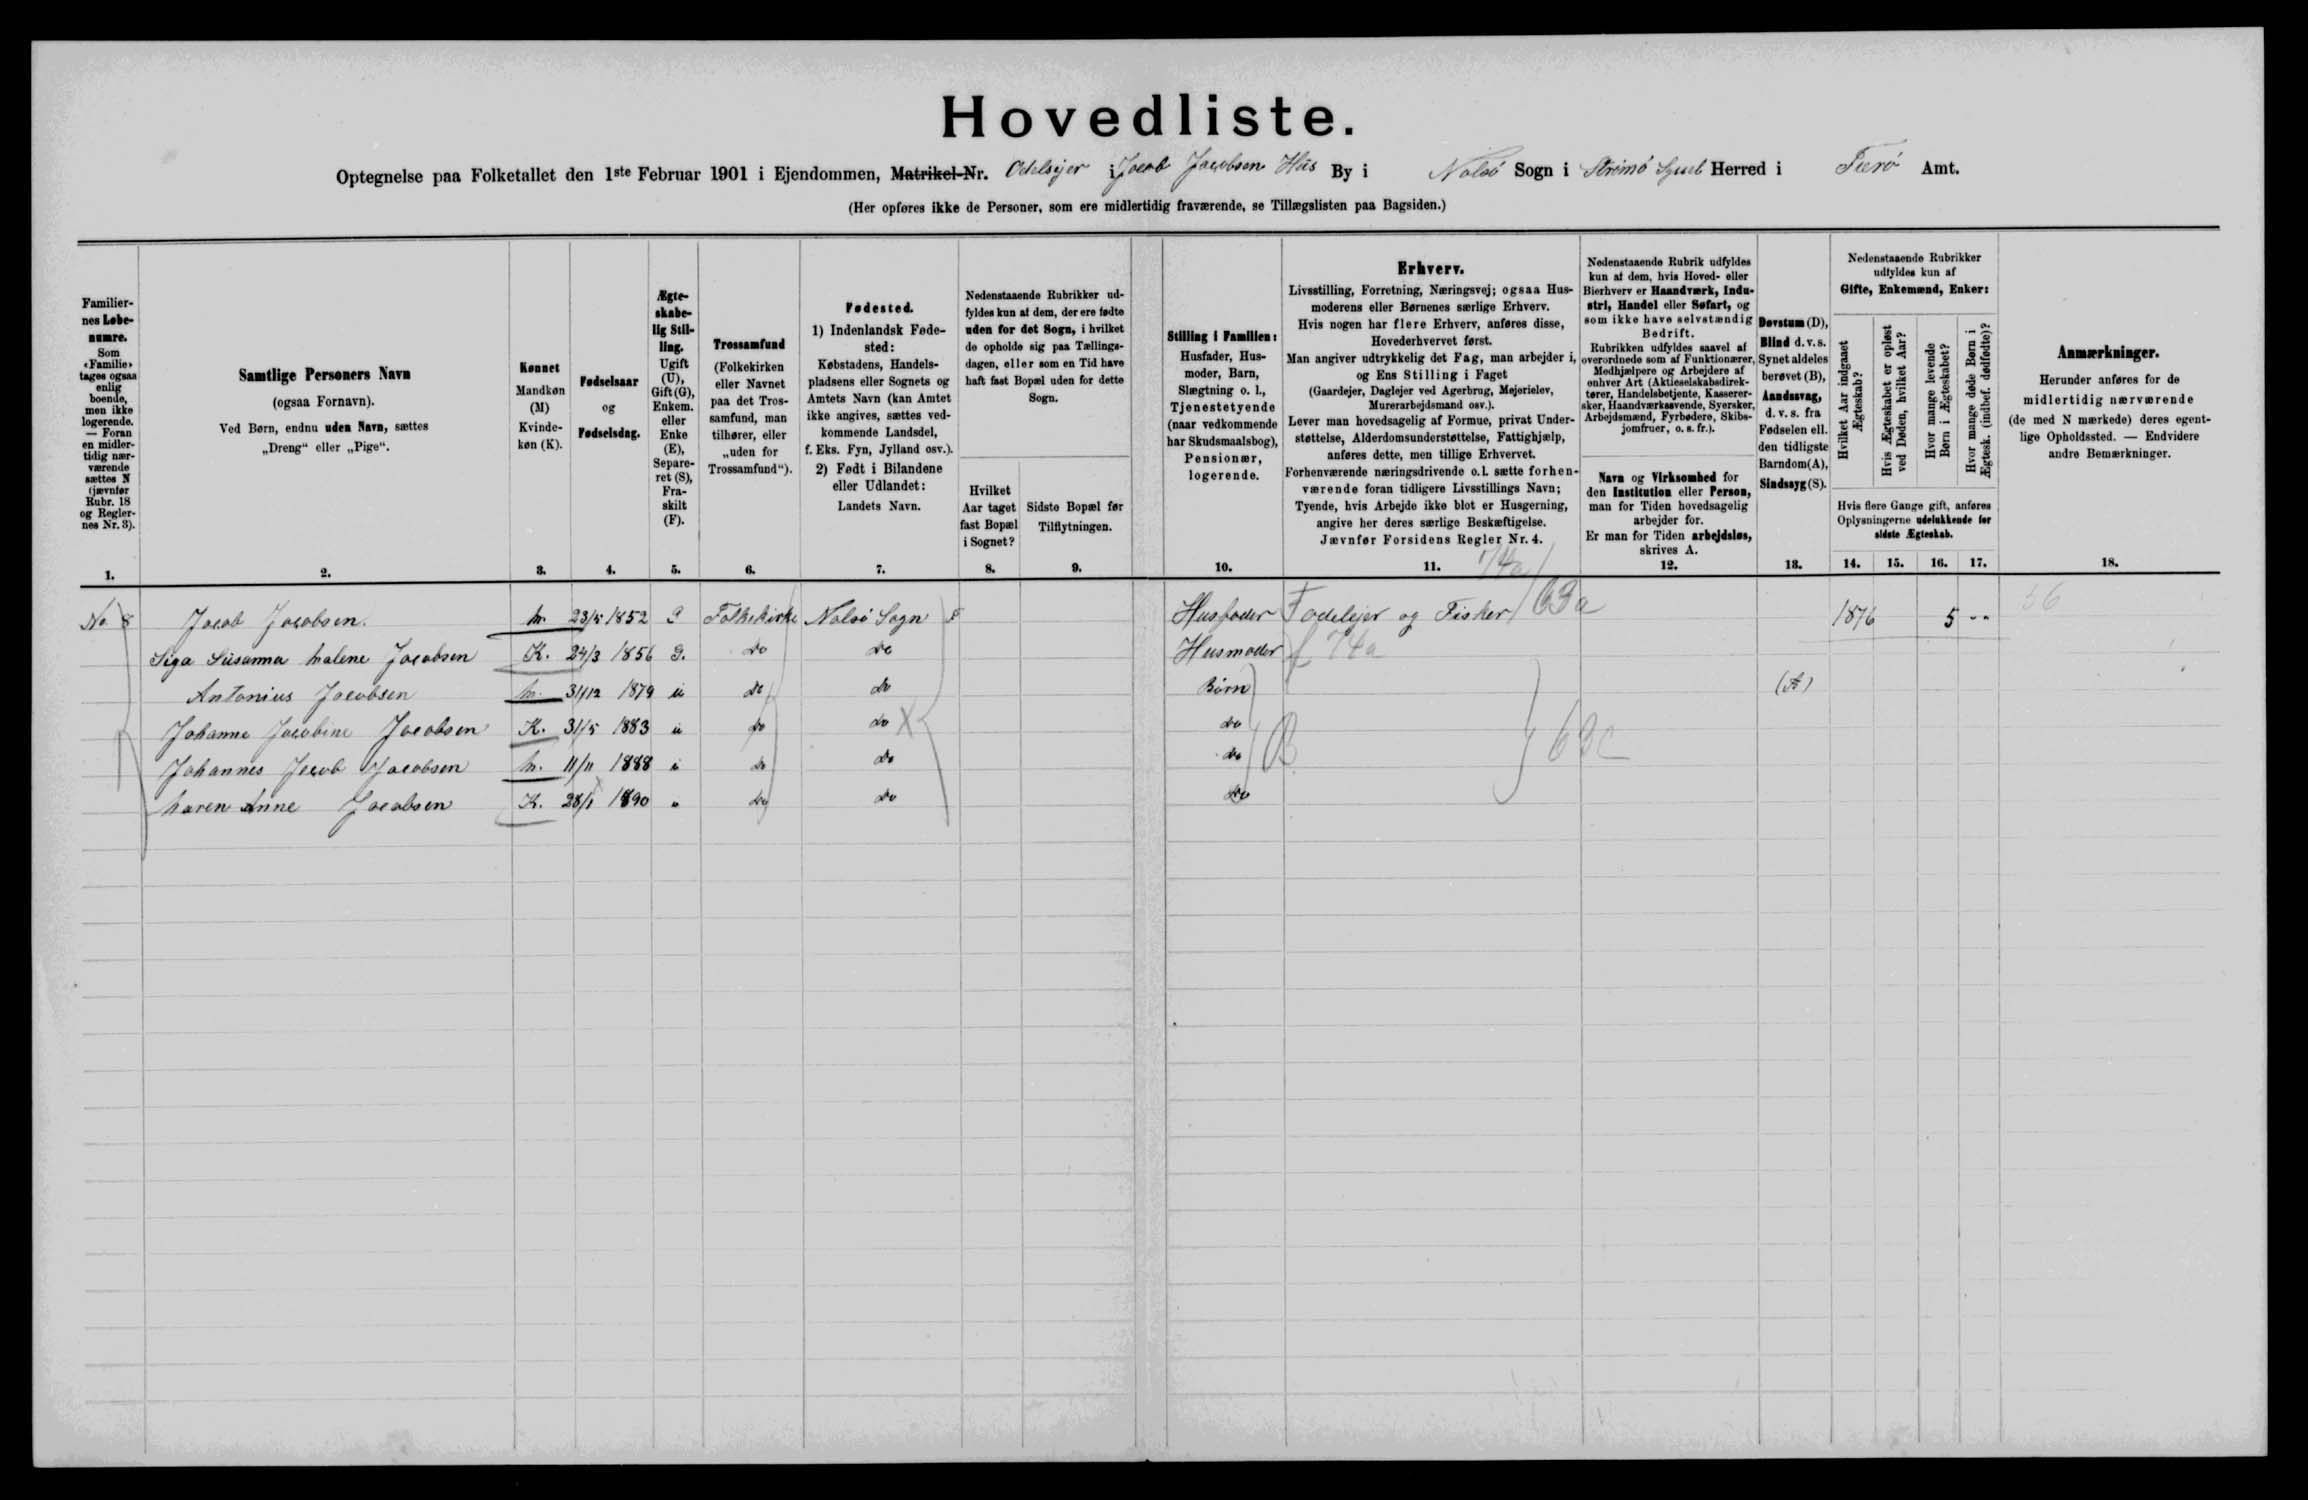 Hovedliste.
Optegnelse paa Folketallet den 1ste Februar 1901 i Ejendommen, Matrikel-Nr. Odelsejer i Jacob Jacobsen Hús By i Nolsö Sogn i Strömö Syssel Herred i Færö Amt.
(Her opføres ikke de Personer, som ere midlertidig fraværende, se Tillægslisten paa Bagsiden.)
Familiernes Løbenumre.
Som «Familie» tages ogsaa enlig boende, men ikke logerende. — Foran en midlertidig nærværende sættes N (jævnfør Rubr. 18 og Reglernes Nr. 3).
1.
Samtlige Personers Navn
(ogsaa Fornavn).
Ved Børn, endnu uden Navn, sættes
„Dreng“ eller „Pige“.
2.
Kønnet
Mandkøn
(M)
Kvinde-
køn (K).
3.
Fødselsaar
og
Fødselsdag.
4.
Ægte-
skabe-
lig Stil-
ling.
Ugift
(U),
Gift (G),
Enkem.
eller
Enke
(E),
Separe-
ret (S),
Fra-
skilt
(F).
5.
Trossamfund
(Folkekirken
eller Navnet
paa det Tros-
samfund, man
tilhører, eller
„uden for
Trossamfund“).
6.
Fødested.
1) Indenlandsk Føde-
sted:
Købstadens, Handels-
pladsens eller Sognets og
Amtets Navn (kan Amtet
ikke angives, sættes ved-
kommende Landsdel,
f. Eks. Fyn, Jylland osv.).
2) Født i Bilandene
eller Udlandet:
Landets Navn.
7.
Nedenstaaende Rubrikker ud-
fyldes kun af dem, der ere fødte
uden for det Sogn, i hvilket
de opholde sig paa Tællings-
dagen, eller som en Tid have
haft fast Bopæl uden for dette
Sogn.
Hvilket
Aar taget
fast Bopæl
i Sognet?
8.
Sidste Bopæl før
Tilflytningen.
9.
Stilling i Familien:
Husfader, Hus-
moder, Barn,
Slægtning o. l.,
Tjenestetyende
(naar vedkommende
har Skudsmaalsbog),
Pensionær,
logerende.
10.
Erhverv.
Livsstilling, Forretning, Næringsvej; ogsaa Hus-
moderens eller Børnenes særlige Erhverv.
Hvis nogen har flere Erhverv, anføres disse,
Hovederhvervet først.
Man angiver udtrykkelig det Fag, man arbejder i,
og Ens Stilling i Faget
(Gaardejer, Daglejer ved Agerbrug, Mejerielev,
Murerarbejdsmand osv.).
Lever man hovedsagelig af Formue, privat Under-
støttelse, Alderdomsunderstøttelse, Fattighjælp,
anføres dette, men tillige Erhvervet.
Forhenværende næringsdrivende o. l. sætte forhen-
værende foran tidligere Livsstillings Navn;
Tyende, hvis Arbejde ikke blot er Husgerning,
angive her deres særlige Beskæftigelse.
Jævnfør Forsidens Regler Nr. 4.
11.
Nedenstaaende Rubrik udfyldes
kun af dem, hvis Hoved- eller
Bierhverv er Haandværk, Indu-
stri, Handel eller Søfart, og
som ikke have selvstændig
Bedrift.
Rubrikken udfyldes saavel af
overordnede som af Funktionærer,
Medhjælpere og Arbejdere af
enhver Art (Aktieselskabsdirek-
tører, Handelsbetjente, Kasserer-
sker, Haandværkssvende, Syersker,
Arbejdsmænd, Fyrbødere, Skibs-
jomfruer, o. s. fr.).
Navn og Virksomhed for
den Institution eller Person,
man for Tiden hovedsagelig
arbejder for.
Er man for Tiden arbejdsløs,
skrives A.
12.
Døvstum (D),
Blind d. v. s.
Synet aldeles
berøvet (B),
Aandssvag,
d. v. s. fra
Fødselen ell.
den tidligste
Barndom (A),
Sindssyg (S).
13.
Nedenstaaende Rubrikker
udfyldes kun af
Gifte, Enkemænd, Enker:
Hvilket Aar indgaaet Ægteskab?
Hvis Ægteskabet er opløst ved Døden, hvilket Aar?
Hvor mange levende Børn i Ægteskabet?
Hvor mange døde Børn i Ægtesk. (indbef. dødfødte)?
Hvis flere Gange gift, anføres
Oplysningerne udelukkende for
sidste Ægteskab.
14. 15. 16. 17.
Anmærkninger.
Herunder anføres for de
midlertidig nærværende
(de med N mærkede) deres egent-
lige Opholdssted. — Endvidere
andre Bemærkninger.
18.
No. 8 Jacob Jacobsen. M. 23/5 1852 G Folkekirke Nolsö Sogn Husfader Odelsejer og Fisker 63a 1876 5 --
Siga Súsanna Malene Jacobsen K. 24/3 1856 G. do do Husmoder f 74a
Antonius Jacobsen M. 31/12 1879 ú do do Börn (A)
Johanne Jacobine Jacobsen K. 31/5 1883 ú do do X do B 63c
Johannes Jacob Jacobsen M. 11/11 1888 ú do do do
Maren Anne Jacobsen K. 28/1 1890 do do do